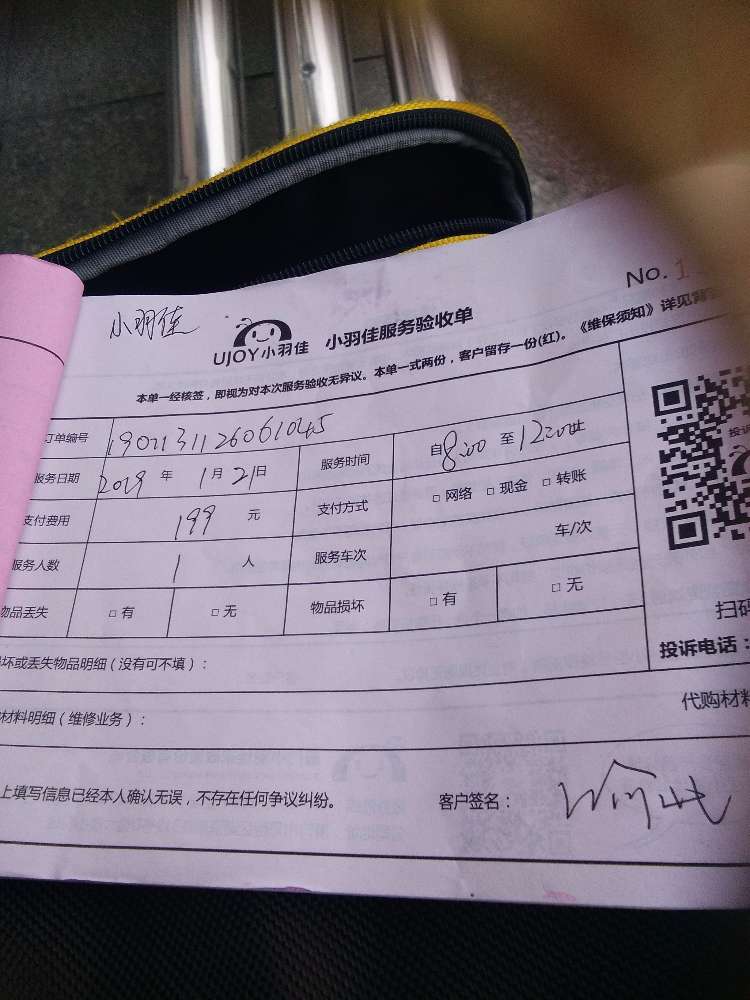 No.
小羽佳
UJOY小羽佳 小羽佳服务验收单
本单一经核签，即视为对本次服务验收无异议。本单一式两份，客户留存一份(红)。《维保须知》详见背
订单编号 190131126061045
服务日期 2019 年 1 月 21 日 服务时间 自 8:00 至 12:00 止
支付费用 199 元 支付方式 □ 网络 □ 现金 □ 转账
服务人数 1 人 服务车次 车/次
物品丢失 □ 有 □ 无 物品损坏 □ 有 □ 无
投诉
扫码
投诉电话：
坏或丢失物品明细（没有可不填）：
材料明细（维修业务）： 代购材料
上填写信息已经本人确认无误，不存在任何争议纠纷。 客户签名：